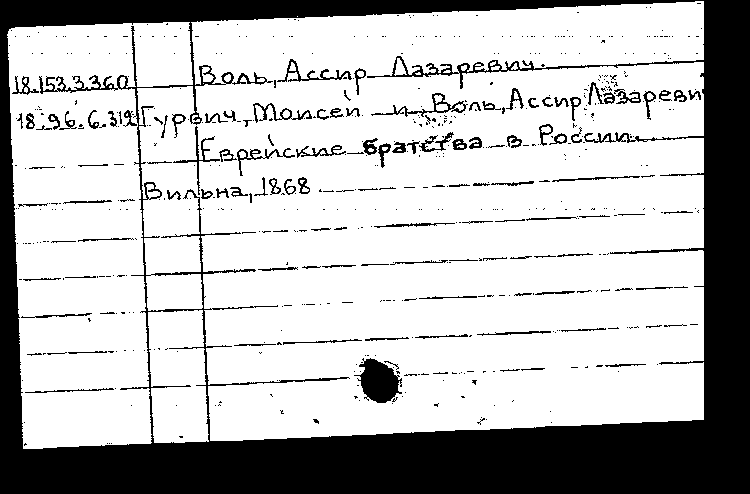 18.153.3.360 Воль, Ассир Лазаревич.
18.96.6.312 Гурвич, Моисей и Воль, Ассир Лазареви
Еврейские братства в России.
Вильна, 1868